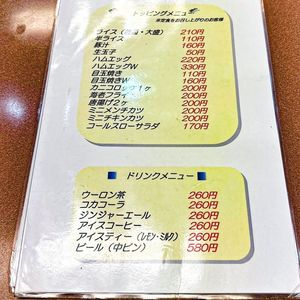 トッピングメニュー
※定食をお召し上がりのお客様
ライス(普通・大盛) 210円
半ライス 110円
豚汁 160円
生玉子 50円
ハムエッグ 220円
ハムエッグW 330円
目玉焼き 110円
目玉焼きW 160円
カニコロッケ1ヶ 200円
海老フライ 200円
唐揚げ2ヶ 200円
ミニメンチカツ 200円
ミニチキンカツ 200円
コールスローサラダ 170円
ドリンクメニュー
ウーロン茶 260円
コカコーラ 260円
ジンジャーエール 260円
アイスコーヒー 260円
アイスティー(レモン・ミルク) 260円
ビール(中ビン) 580円